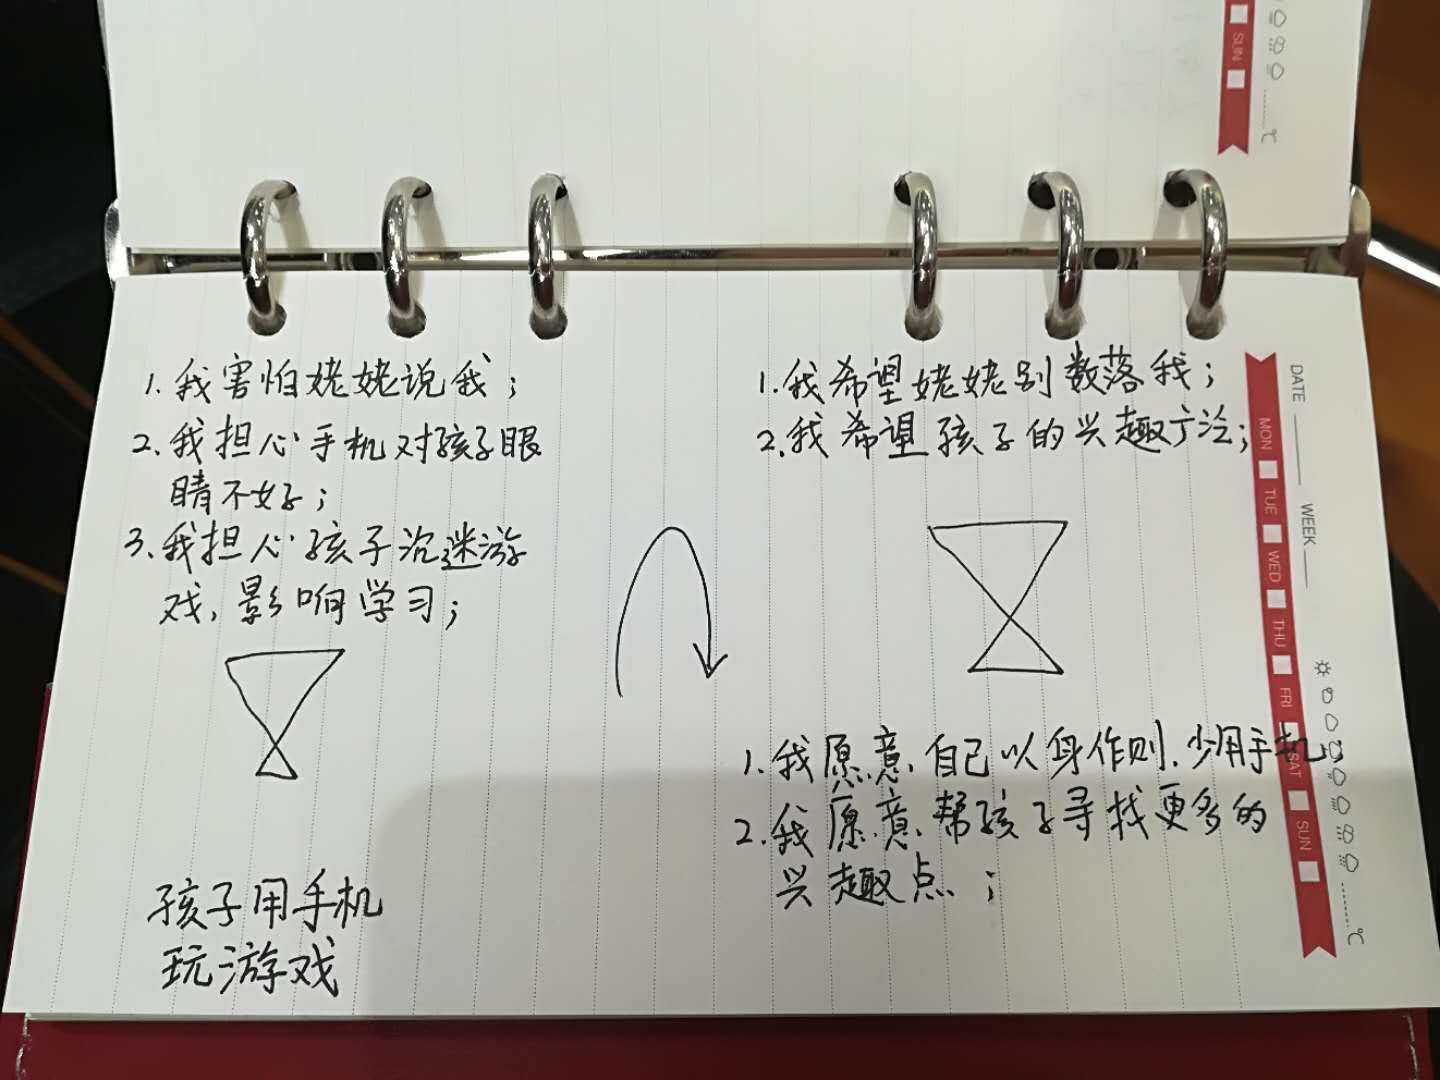 SUN
℃
1. 我害怕姥姥说我;
2. 我担心手机对孩子眼
睛不好;
3. 我担心孩子沉迷游
戏, 影响学习;
孩子用手机
玩游戏
1. 我希望姥姥别数落我;
2. 我希望孩子的兴趣广泛;
1. 我愿意自己以身作则、少用手机;
2. 我愿意帮孩子寻找更多的
兴趣点;
DATE
WEEK
MON
TUE
WED
THU
FRI
SAT
SUN
℃